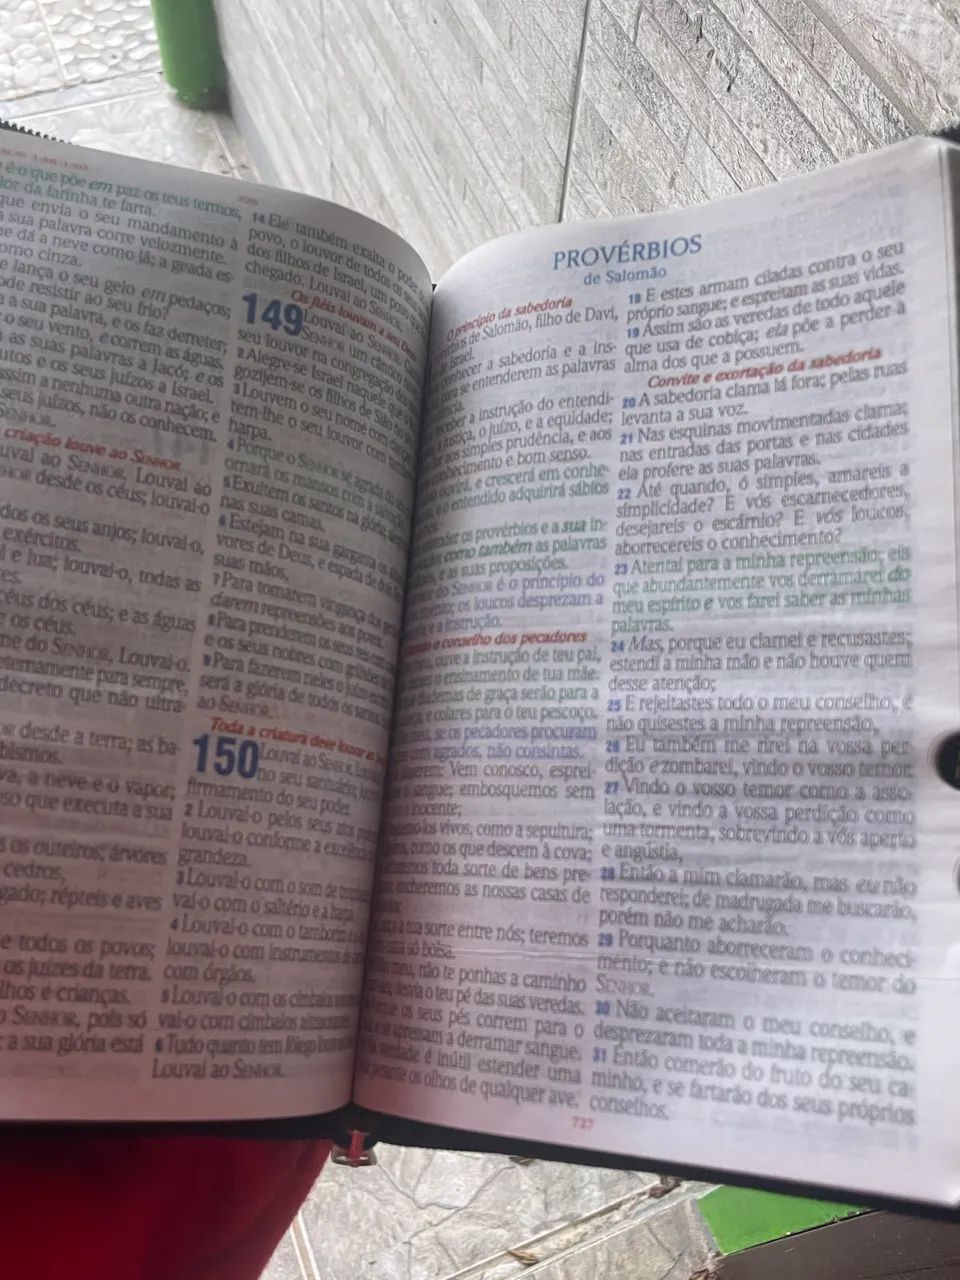 é o que põe em paz os teus termos,
da farinha te farta.
que envia o seu mandamento à
sua palavra corre velozmente.
dá a neve como lã; a geada es-
como cinza.
lança o seu gelo em pedaços;
resistir ao seu frio?
a sua palavra, e os faz derreter;
o seu vento, e correm as águas.
as suas palavras a Jacó; e os
e os seus juízos a Israel.
assim a nenhuma outra nação; e
seus juízos, não os conhecem.
SENHOR.
criação louve ao SENHOR
ao SENHOR. Louvai ao
desde os céus; louvai-o
os seus anjos; louvai-o,
exércitos.
e lua; louvai-o, todas as
céus dos céus; e as águas
e os céus.
do SENHOR, Louvai-o.
para sempre,
decreto que não ultra-
desde a terra; as ba-
a neve e o vapor;
que executa a sua
os outeiros; árvores
cedros,
répteis e aves
e todos os povos;
os juízes da terra.
e crianças.
SENHOR, pois só
a sua glória está
14 Ele também exalta o poder
povo, o louvor de todos os
dos filhos de Israel, um povo
chegado. Louvai ao SENHOR.
Os fiéis louvam a seu Deus
149 Louvai ao SENHOR.
SENHOR um cântico
seu louvor na congregação dos
2 Alegre-se Israel naquele que
gozijem-se os filhos de Sião no
3 Louvem o seu nome com
tem-lhe o seu louvor com
harpa.
4 Porque o SENHOR se agrada do
ornará os mansos com a salvação.
5 Exultem os santos na glória;
nas suas camas.
6 Estejam na sua garganta os
vores de Deus, e espada de
suas mãos,
7 Para tomarem vingança dos
darem repreensões aos povos;
8 Para prenderem os seus reis com
e os seus nobres com grilhões de
9 Para fazerem neles o juízo
será a glória de todos os santos.
ao SENHOR.
Toda a criatura deve louvar ao
150 Louvai ao SENHOR. Louvai
no seu santuário;
firmamento do seu poder.
2 Louvai-o pelos seus atos
louvai-o conforme a excelência
grandeza.
3 Louvai-o com o som de
vai-o com o saltério e a harpa.
4 Louvai-o com o tamborim e a
louvai-o com instrumentos de
com órgãos.
5 Louvai-o com os címbalos
vai-o com címbalos
6 Tudo quanto tem fôlego
Louvai ao SENHOR.
PROVÉRBIOS
de Salomão
O princípio da sabedoria
de Salomão, filho de Davi,
Israel.
conhecer a sabedoria e a ins-
para se entenderem as palavras
a instrução do entendi-
a justiça, o juízo, e a equidade;
aos simples prudência, e aos
conhecimento e bom senso.
ouvirá, e crescerá em conhe-
e o entendido adquirirá sábios
provérbios e a sua in-
como também as palavras
e as suas proposições.
do SENHOR é o princípio do
os loucos desprezam a
e a instrução.
conselho dos pecadores
ouve a instrução de teu pai,
o ensinamento de tua mãe.
de graça serão para a
e colares para o teu pescoço.
se os pecadores procuram
com agrados, não consintas.
Vem conosco, esprei-
sangue; embosquemos sem
inocente;
vivos, como a sepultura;
como os que descem à cova;
toda sorte de bens pre-
encheremos as nossas casas de
a tua sorte entre nós; teremos
uma só bolsa.
meu, não te ponhas a caminho
desvia o teu pé das suas veredas.
os seus pés correm para o
se apressam a derramar sangue.
verdade é inútil estender uma
perante os olhos de qualquer ave.
18 E estes armam ciladas contra o seu
próprio sangue; e espreitam as suas vidas.
19 Assim são as veredas de todo aquele
que usa de cobiça; ela põe a perder a
alma dos que a possuem.
Convite e exortação da sabedoria
20 A sabedoria clama lá fora; pelas ruas
levanta a sua voz.
21 Nas esquinas movimentadas clama;
nas entradas das portas e nas cidades
ela profere as suas palavras.
22 Até quando, ó simples, amareis a
simplicidade? E vós escarnecedores,
desejareis o escárnio? E vós loucos,
aborrecereis o conhecimento?
23 Atentai para a minha repreensão; eis
que abundantemente vos derramarei do
meu espírito e vos farei saber as minhas
palavras.
24 Mas, porque eu clamei e recusastes;
estendi a minha mão e não houve quem
desse atenção;
25 E rejeitastes todo o meu conselho, e
não quisestes a minha repreensão,
26 Eu também me rirei na vossa per-
dição e zombarei, vindo o vosso temor.
27 Vindo o vosso temor como a asso-
lação, e vindo a vossa perdição como
uma tormenta, sobrevindo a vós aperto
e angústia,
28 Então a mim clamarão, mas eu não
responderei; de madrugada me buscarão,
porém não me acharão.
29 Porquanto aborreceram o conheci-
mento; e não escolheram o temor do
SENHOR.
30 Não aceitaram o meu conselho, e
desprezaram toda a minha repreensão.
31 Então comerão do fruto do seu ca-
minho, e se fartarão dos seus próprios
conselhos.
727